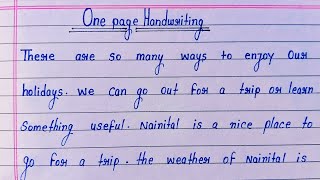 One page Handwriting
There are so many ways to enjoy our
holidays. We can go out for a trip or learn
something useful. Nainital is a nice place to
go for a trip. the weather of Nainital is